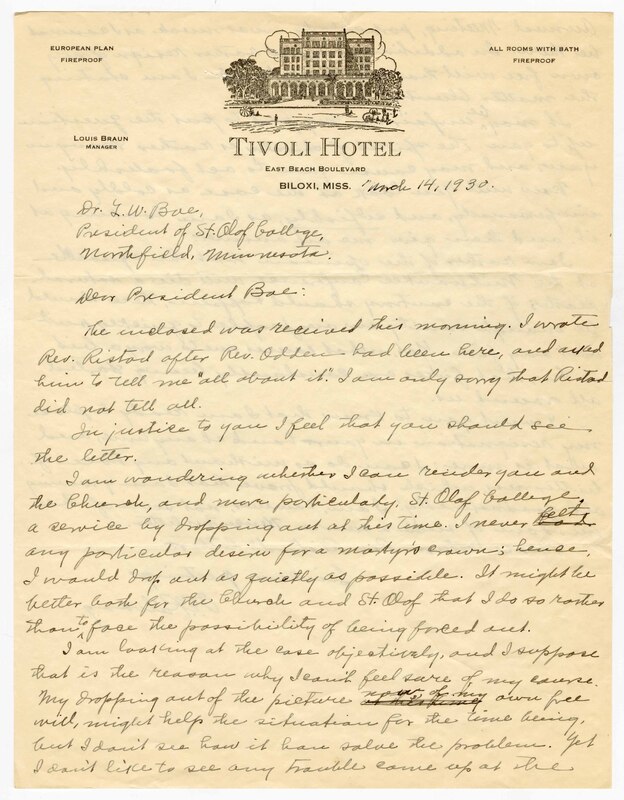 EUROPEAN PLAN
FIREPROOF
ALL ROOMS WITH BATH
FIREPROOF
LOUIS BRAUN
MANAGER
TIVOLI HOTEL
EAST BEACH BOULEVARD
BILOXI, MISS. March 14, 1930.
Dr. L. W. Boe,
President of St. Olof College,
Northfield, Minnesota.
Dear President Boe:
The inclosed was received this morning. I wrote
Rev. Ristad after Rev. Odden had been here, and asked
him to tell me "all about it". I am only sorry that Ristad
did not tell all.
In justice to you I feel that you should see
the letter.
I am wondering whether I can render you and
the Church, and more particularly, St. Olof College,
a service by dropping out at this time. I never felt
any particular desire for a martyr's crown; hence,
I would drop out as quietly as possible. It might be
better both for the Church and St. Olof that I do so rather
than to face the possibility of being forced out.
I am looking at the case objectively, and I suppose
that is the reason why I can't feel sure of my course.
My dropping out of the picture now, of my own free
will, might help the situation for the time being,
but I don't see how it can solve the problem. Yet
I don't like to see any trouble come up at the